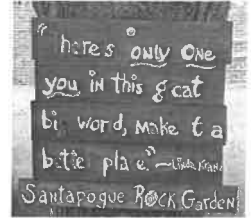 "heres only one
you in this g eat
bi word, make t a
bettie pla e." — Linda Kranz
Santapogue Rock Garden